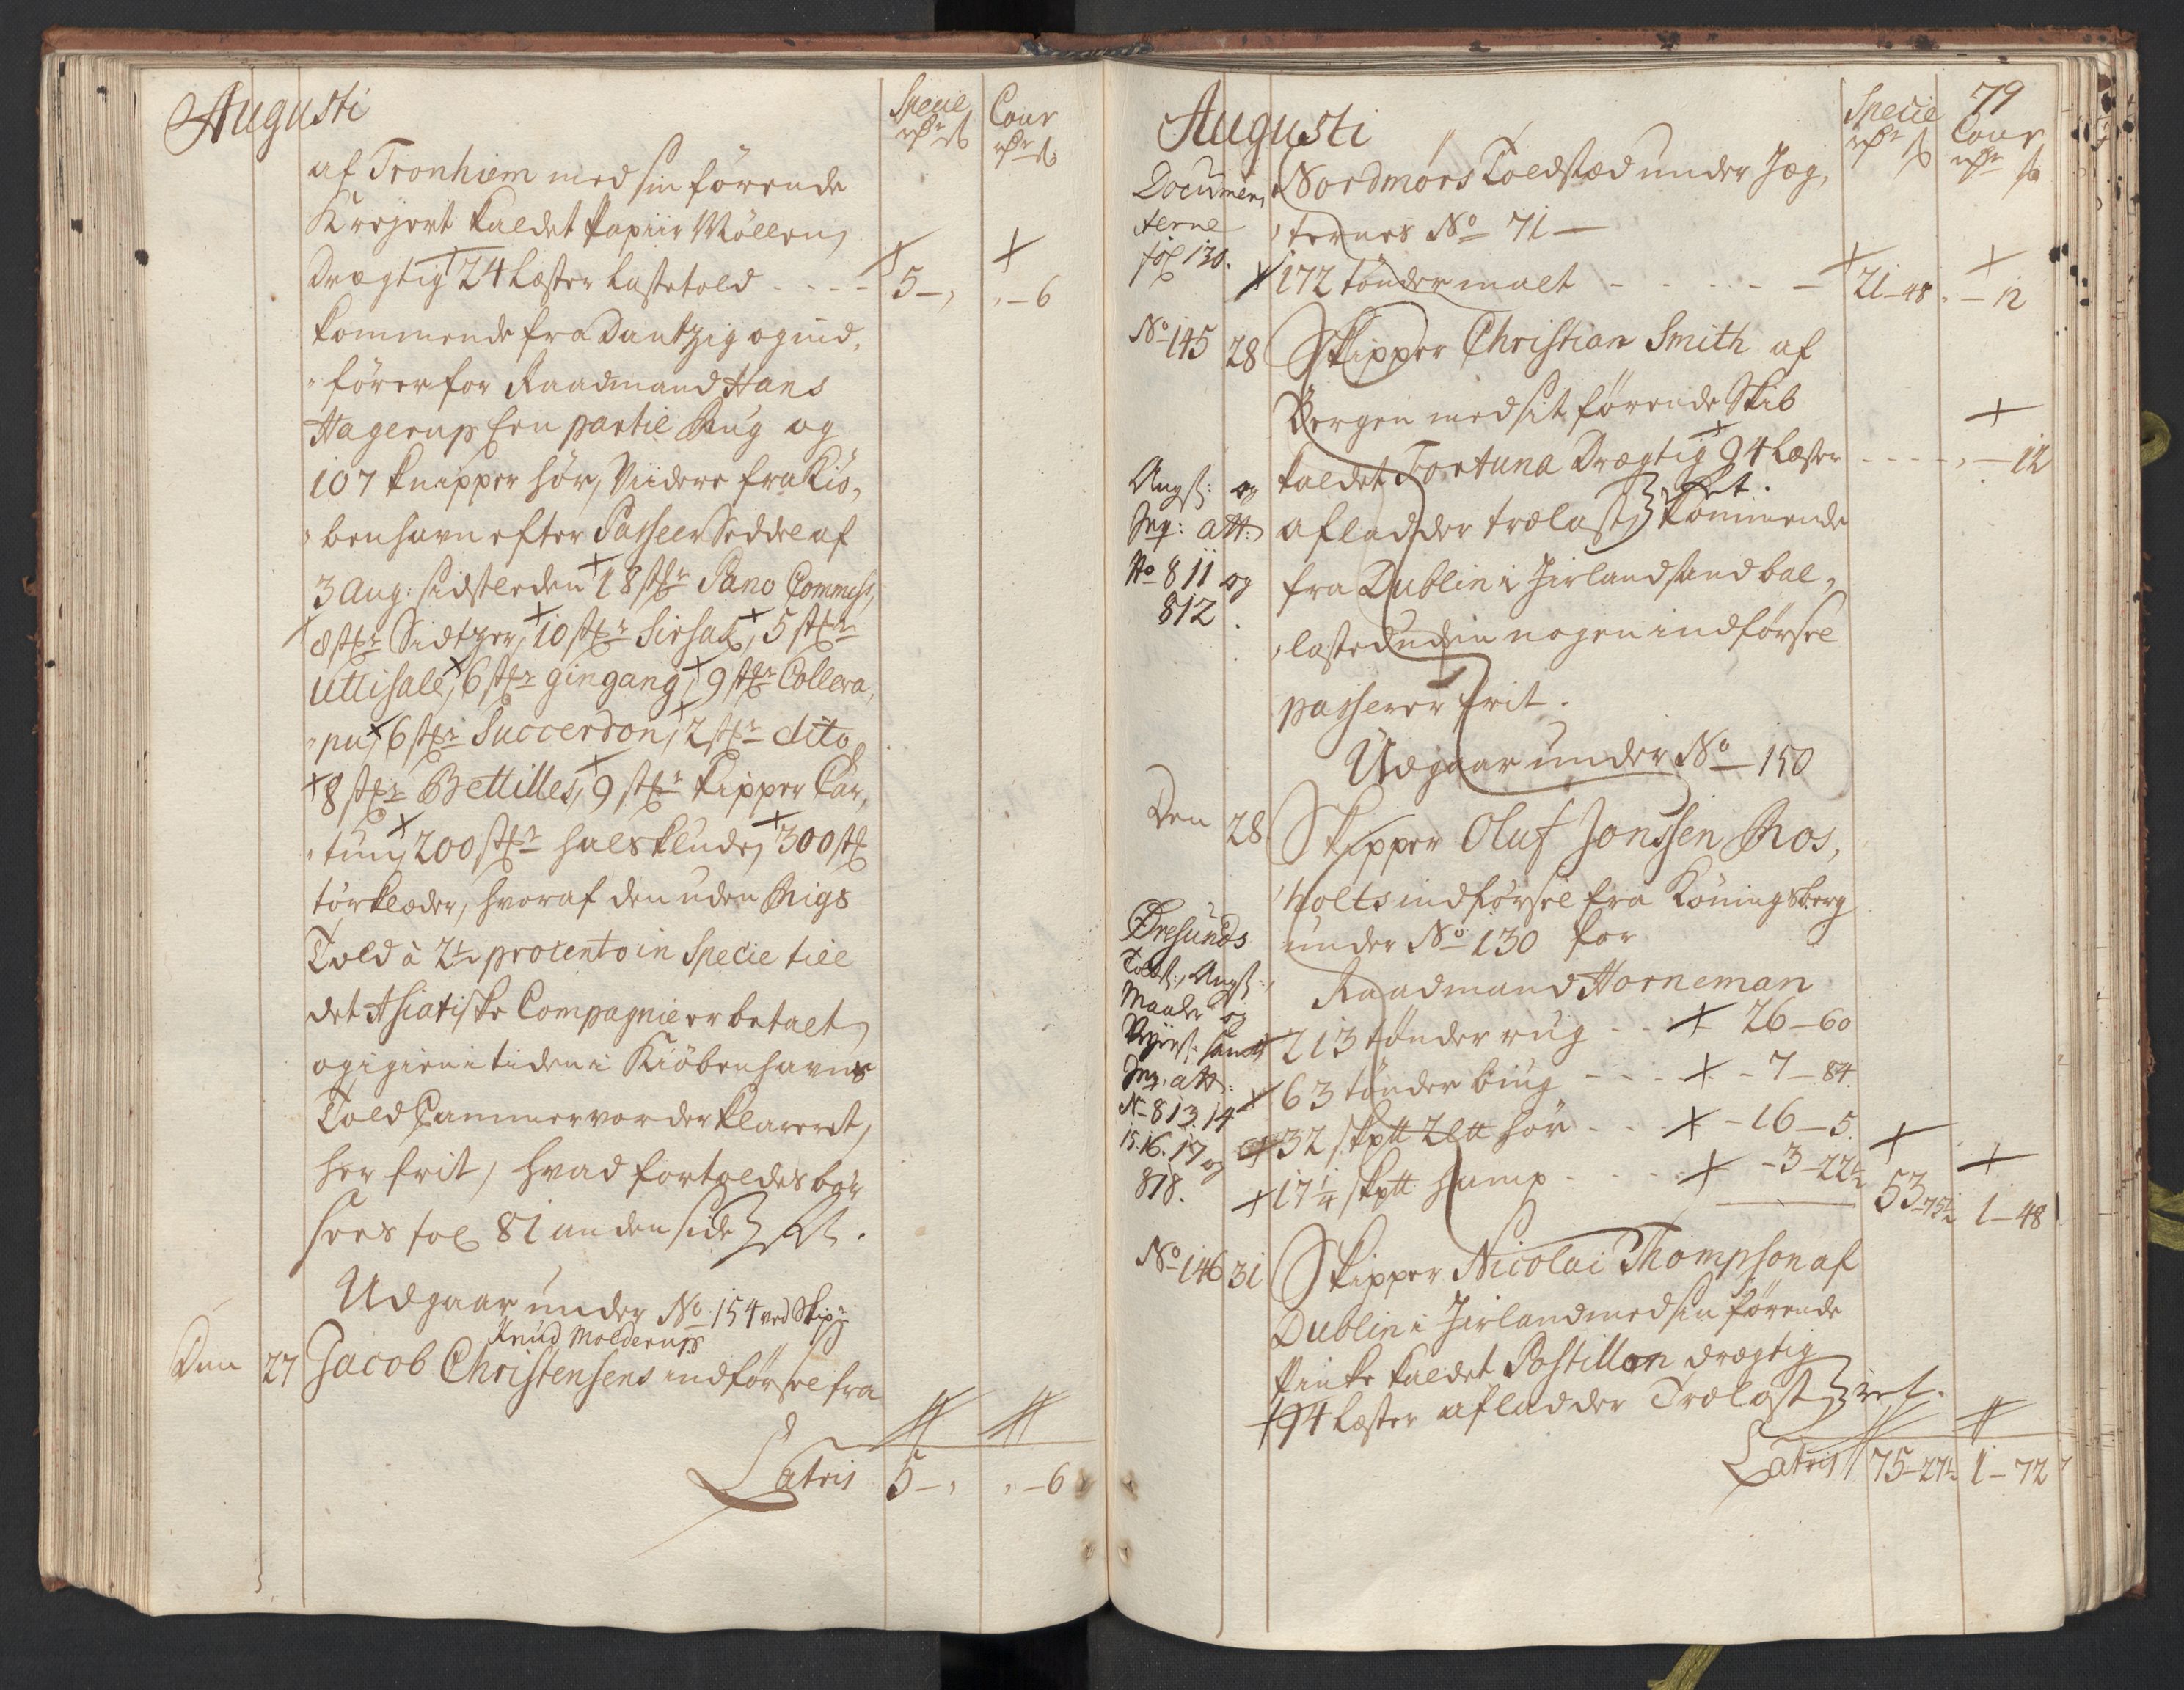 Augusti
Specie
Cour
af Tronhiem med sin förende
Krejert kaldet Papiir Möllen,
drægtig 24 Læster Lastetold - - - - 5 - , , - 6
kommende fra Dantzig og ind,
förer for Raadmand Hans
Hagerup En partie Rug og
107 knipper hör, Viidere fra Kiö,
benhavn efter Passeer Seddel af
3 Aug: sidstleden 18 st Pano Commess,
8 st Sidtzer, 10 st Sirsak, 5 st
Uttisale, 6 st gingang, 9 st Collera,
pu, 6 st Succerdon, 2 st dito
8 st Bettilles, 9 st kipper Car,
tun, 200 st halsklude, 300 st
törklæder, hvoraf den uden Rigs
Told à 2½ procento in Specie till
det Asiatiske Compagnie er betalt,
og igien i tiden i Kiöbenhavns
Told Cammer vorder klareret,
her frit, hvad fortoldes bör
sees fol 81 anden side
Udgaar under No. 154 ved Skip
Knud Molderups
Den 27 Jacob Christensens indförsel fra
Latris 5 - , , - 6
79
Augusti
Specie
Cour
Documen,
terne
fol 130.
Nordmörs Toldsted under Jæg,
ternes No 71 —
172 tönder malt - - - - - 21 - 48 , - 12
No 145 28 Skipper Christian Smith af
Bergen med sit förende Skib
kaldet Fortuna Drægtig 94 Læster - - - - , - 12
Angst: og
Inq: att:
No 811 og
812
aflad der trælast kommende
fra Dublin i Jirland sand bal,
lasted uden nogen indförsel
passerer frit.
Udgaar under No 150
Den 28 Skipper Oluf Jonssen Ros,
holts indförsel fra Köningsberg
Øresunds
Toldst:, Angst:
Maaler og
Vejerst: samt
Inq: att:
N 813. 14
15. 16. 17 og
818.
under No 130 for
Raadmand Horneman
213 tönder rug - - 26 - 60
63 tönder biug - - - - 7 - 84
32 skptt 2 ltt hör - - - 16 - 5.
17¼ skptt hamp - - - - 3 - 22½ 53 - 75½ 1 - 48
No 146 31 Skipper Nicolai Thompson af
Dublin i Jirland med sin förende
Pinke kaldet Postillon drægtig
94 Læster aflad der Trælast
Latris 75 - 27½ 1 - 72